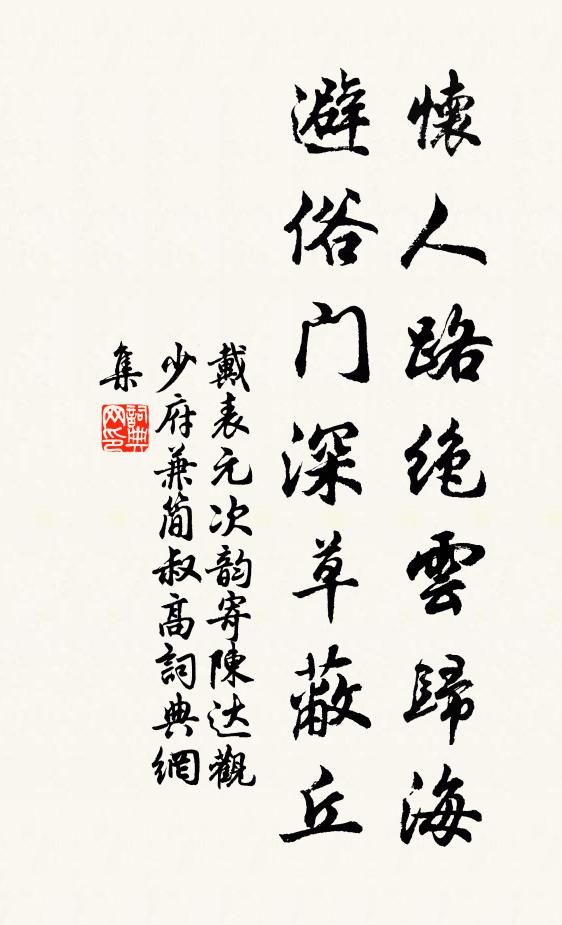 懷人路绝雲歸海
避俗门深草蔽丘
戴表元次韵寄陳达觀
少府兼简叔高詞典網
集
詞典
网印